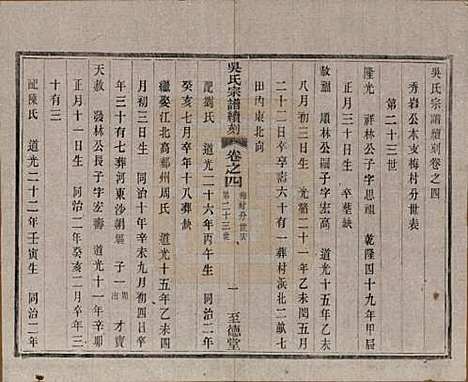 吳氏宗譜續刻卷之四
秀岩公本支梅村分世表
第二十三世
隆光 祥林公子字思祖 乾隆四十九年甲辰
正月三十日生 卒葬缺
敖福 順林公嗣子字宏高 道光十五年乙未
八月初三日生 光緒二十一年乙未閏五月
二十二日卒享壽六十有一葬村浜北二畝七
田內東北向
吳氏宗譜續刻
卷之四
梅村分世表
第二十三世
一
至德堂
配劉氏 道光二十六年丙午生 同治二年
癸亥六月卒年十八葬缺
繼娶江北高郵州周氏 道光十五年乙未四
月初三日生 同治十年辛未九月初四日卒
年三十有七葬河東沙朝 子一 才賣
天敖 發林公長子字宏壽 道光十一年辛卯
正月十一日生 同治二年癸亥二月卒年三
十有三
配陳氏 道光二十二年壬寅生 同治二年